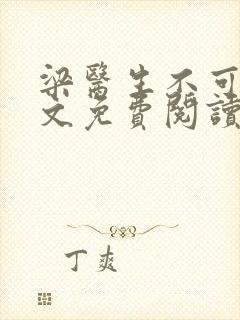 梁醫生不可
文免費閱讀
丁爽